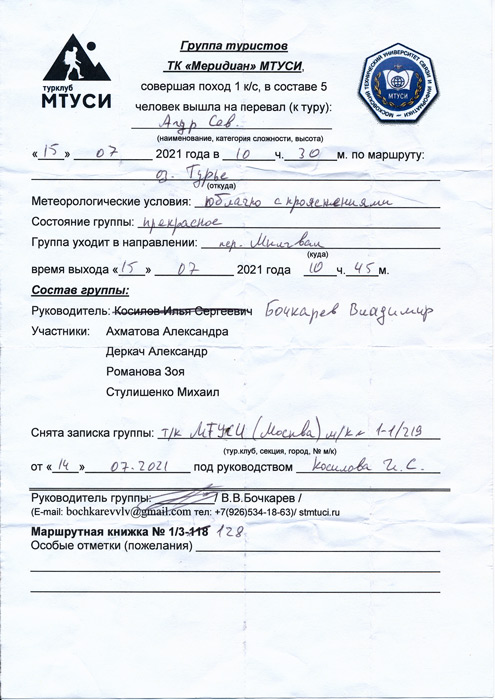 турклуб
МТУСИ
Группа туристов
ТК «Меридиан» МТУСИ,
совершая поход 1 к/с, в составе 5
человек вышла на перевал (к туру):
Сев.
(наименование, категория сложности, высота)
« 15 » 07 2021 года в 10 ч. 30 м. по маршруту:
оз. Турье
(откуда)
Метеорологические условия: облачно с прояснениями
Состояние группы: прекрасное
Группа уходит в направлении: пер.
(куда)
время выхода «15 » 07 2021 года 10 ч. 45 м.
Состав группы:
Руководитель: Косилов Илья Сергеевич Бочкарев Владимир
Участники: Ахматова Александра
Деркач Александр
Романова Зоя
Стулишенко Михаил
Снята записка группы: т/к МТУСИ (Москва) м/к № 1-1/219
(тур.клуб, секция, город, № м/к)
от « 14 » 07.2021 под руководством Косилова И.С.
Руководитель группы: / В.В.Бочкарев /
(E-mail: bochkarevvlv@gmail.com тел: +7(926)534-18-63)/ stmtuci.ru
Маршрутная книжка № 1/3-118 128
Особые отметки (пожелания)
МОСКОВСКИЙ ТЕХНИЧЕСКИЙ УНИВЕРСИТЕТ СВЯЗИ И ИНФОРМАТИКИ
МТУСИ